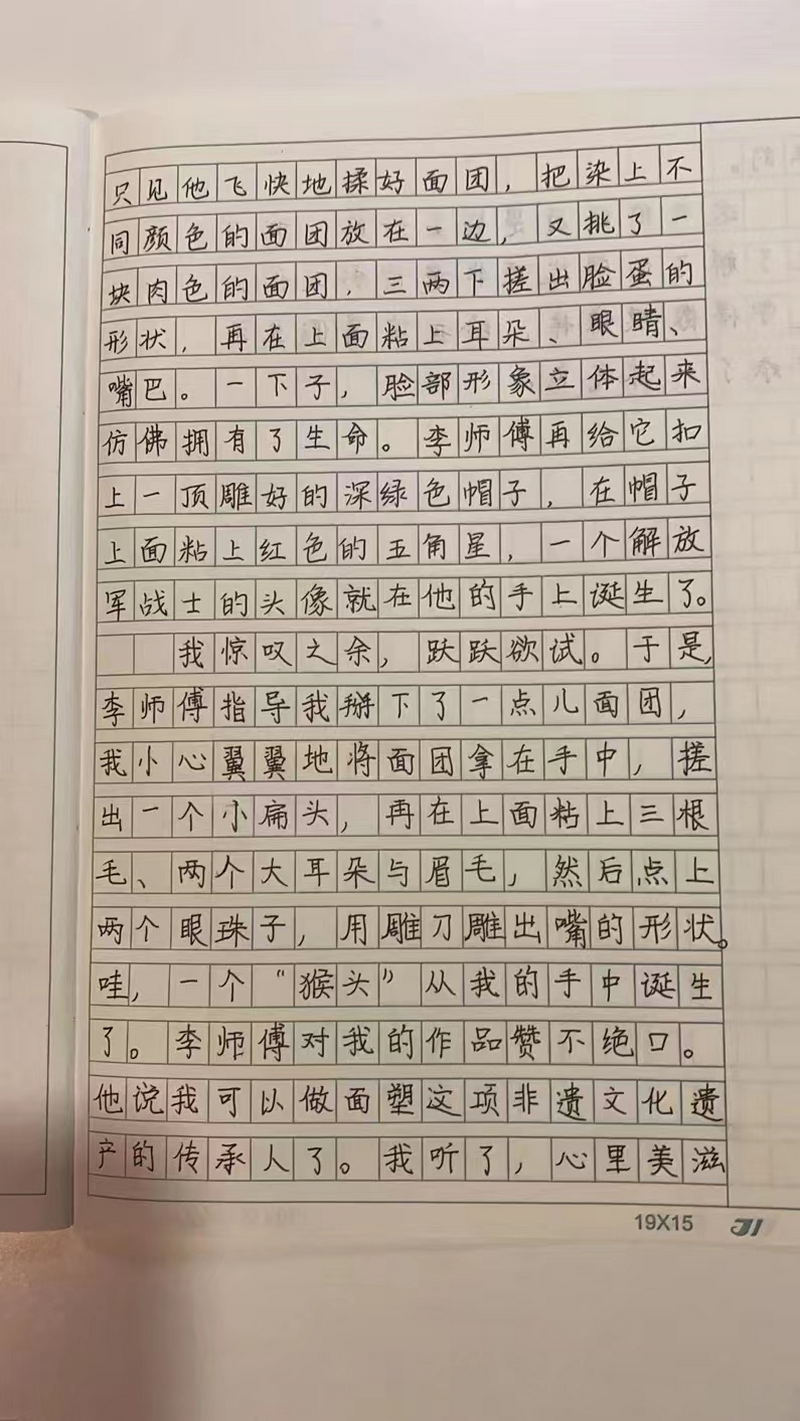 只见他飞快地揉好面团，把染上不
同颜色的面团放在一边，又挑了一
块肉色的面团，三两下搓出脸蛋的
形状，再在上面粘上耳朵、眼睛、
嘴巴。一下子，脸部形象立体起来
仿佛拥有了生命。李师傅再给它扣
上一顶雕好的深绿色帽子，在帽子
上面粘上红色的五角星，一个解放
军战士的头像就在他的手上诞生了。
我惊叹之余，跃跃欲试。于是，
李师傅指导我掰下了一点儿面团，
我小心翼翼地将面团拿在手中，搓
出一个小扁头，再在上面粘上三根
毛、两个大耳朵与眉毛，然后点上
两个眼珠子，用雕刀雕出嘴的形状。
哇，一个“猴头”从我的手中诞生
了。李师傅对我的作品赞不绝口。
他说我可以做面塑这项非遗文化遗
产的传承人了。我听了，心里美滋
19X15